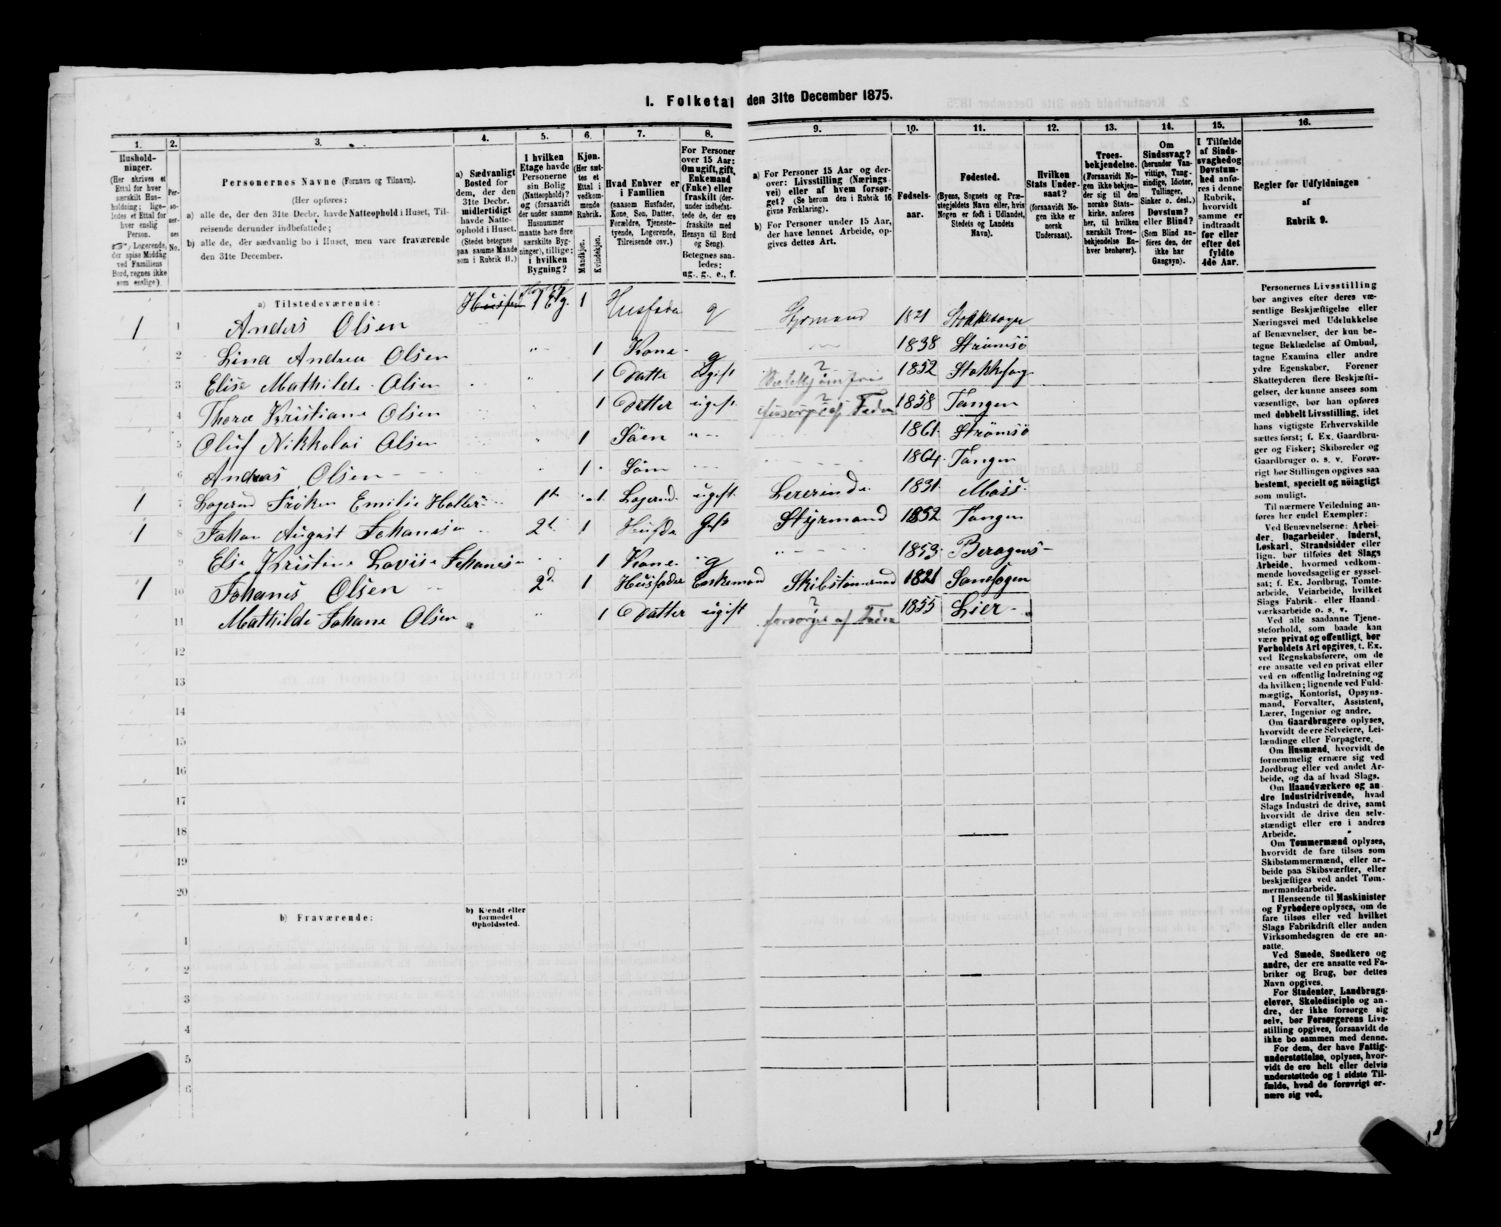 1. Folketal den 31te December 1875.
1. 2. 3. 4. 5. 6. 7. 8. 9. 10. 11. 12. 13. 14. 15. 16.
Husholdninger.
(Her skrives et Ettal for hver særskilt Husholdning; ligeledes et Ettal for hver enslig Person.
Logerende, der spise Middag ved Familiens Bord, regnes ikke som enslige).
Personernes No.
Personernes Navne (Fornavn og Tilnavn).
(Her opføres:
a) alle de, der den 31te Decbr. havde Natteophold i Huset, Tilreisende derunder indbefattede;
b) alle de, der sædvanlig bo i Huset, men vare fraværende den 31te December.
a) Sædvanligt Bosted for dem, der den 31te Decbr. midlertidigt havde Natteophold i Huset. (Stedet betegnes paa samme Maade som i Rubrik 11.)
I hvilken Etage havde Personerne sin Bolig (Natteophold)? og (forsaavidt der under samme Husnummer maatte høre flere særskilte Bygninger), tillige: i hvilken Bygning?
Kjøn. (Her sættes et Ettal i vedkommende Rubrik.
Mandkjøn. Kvindekjøn.
Hvad Enhver er i Familien (saasom Husfader, Kone, Søn, Datter, Forældre, Tjenestetyende, Logerende, Tilreisende osv.)
For Personer over 15 Aar: Om ugift, gift, Enkemand (Enke) eller fraskilt (derunder indbefattede de, der ere fraskilte med Hensyn til Bord og Seng). Betegnes saaledes: ug., g., e., f.
a) For Personer 15 Aar og derover: Livsstilling (Næringsvei) eller af hvem forsørget? (Se herom den i Rubrik 16 givne Forklaring).
b) For Personer under 15 Aar, der have lønnet Arbeide, opgives dettes Art.
Fødselsaar.
Fødested. (Byens, Sognets og Præstegjeldets Navn eller, hvis Nogen er født i Udlandet, Stedets og Landets Navn).
Hvilken Stats Undersaat? (forsaavidt Nogen ikke er norsk Undersaat).
Troesbekjendelse. (Forsaavidt Nogen ikke bekjender sig til den norske Statskirke, anføres her, til hvilken særskilt Troesbekjendelse Enhver henhører).
Om Sindssvag? (herunder Vanvittige, Tungsindige, Idioter, Tullinger, Sinker o. desl.) Døvstum? eller Blind? (Som Blind anføres den, der ikke har Gangsyn).
I Tilfælde af Sindssvaghed og Døvstumhed anføres i denne Rubrik, hvorvidt samme er indtraadt før eller efter det fyldte 4de Aar.
Regler for Udfyldningen af Rubrik 9.
a) Tilstedeværende:
1 1 Anders Olsen 1 Husfader g Styrmand 1821 Stokkesogn
2 Lina Andrea Olsen " 1 Kone g 1838 Strømsø
3 Elise Mathilde Olsen " 1 Datter Ugift 1852 Stokksog
4 Thora Kristiane Olsen " 1 Datter ugift forsørges af Fader 1858 Tangen
5 Oluf Nikkolai Olsen " 1 Søen 1861 Strømsø
6 Andreas Olsen 1 Søn 1864 Tangen
1 7 Logerend Frøken Emilie Holter 1 Logerend. ugift Lererinde 1831 Moss
1 8 Johan August Johanesen 2 1 Husfda Gift Styrmand 1852 Tangen
9 Else Kristine Lovise Johanesen 1 Kone g 1853 Beragens
1 10 Johanes Olsen 2d 1 Husfader Enkemand Skibstømmrmand 1821 Sandsogen
11 Mathilde Johane Olsen 1 Datter ugift forsørges af Fader 1855 Lier
12
13
14
15
16
17
18
19
20
b) Fraværende:
b) Kjendt eller formodet Opholdssted.
1
2
3
4
5
6
Personernes Livsstilling
bør angives efter deres væ-
sentlige Beskjæftigelse eller
Næringsvei med Udelukkelse
af Benævnelser, der kun be-
tegne Beklædelse af Ombud,
tagne Examina eller andre
ydre Egenskaber. Forener
Skatteyderen flere Beskjæfti-
gelser, der kunne ansees som
væsentlige, bør han opføres
med dobbelt Livsstilling, idet
hans vigtigste Erhvervskilde
sættes først; f. Ex. Gaardbru-
ger og Fisker; Skibsreder og
Gaardbruger o. s. v. Forøv-
rigt bør Stillingen opgives saa
bestemt, specielt og nøiagtigt
som muligt.
Til nærmere Veiledning an-
føres her endel Exempler:
Ved Benævnelserne: Arbei-
der, Dagarbeider, Inderst,
Løskarl, Strandsidder eller
lign. bør tilføies det Slags
Arbeide, hvormed vedkom-
mende hovedsagelig er syssel-
sat; f. Ex. Jordbrug, Tomte-
arbeide, Veiarbeide, hvilket
Slags Fabrik- eller Haand-
værksarbeide o. s. v.
Ved alle saadanne Tjene-
steforhold, som baade kan
være privat og offentligt, bør
Forholdets Art opgives, t. Ex.
ved Regnskabsførere, om de
ere ansatte ved en privat eller
ved en offentlig Indretning og
da hvilken; lignende ved Fuld-
mægtig, Kontorist, Opsyns-
mand, Forvalter, Assistent,
Lærer, Ingeniør og andre.
Om Gaardbrugere oplyses,
hvorvidt de ere Selveiere, Lei-
lændinge eller Forpagtere.
Om Husmænd, hvorvidt de
fornemmelig ernære sig ved
Jordbrug eller ved andet Ar-
beide, og da af hvad Slags.
Om Haandværkere og an-
dre Industridrivende, hvad
Slags Industri de drive, samt
hvorvidt de drive den selv-
stændigt eller ere i andres
Arbeide.
Om Tømmermænd oplyses,
hvorvidt de fare tilsøs som
Skibstømmermænd, eller ar-
beide paa Skibsværfter, eller
beskjæftiges ved andet Tøm-
mermandsarbeide.
I Henseende til Maskinister
og Fyrbødere oplyses, om de
fare tilsøs eller ved hvilket
Slags Fabrikdrift eller anden
Virksomhedsgren de ere an-
satte.
Ved Smede, Snedkere og
andre, der ere ansatte ved Fa-
briker og Brug, bør dettes
Navn opgives.
For Studenter, Landbrugs-
elever, Skoledisciple og an-
dre, der ikke forsørge sig
selv, bør Forsørgerens Livs-
stilling opgives, forsaavidt de
ikke bo sammen med denne.
For dem, der have Fattig-
understøttelse, oplyses, hvor-
vidt de ere helt eller delvis
understøttede og i sidste Til-
fælde, hvad de forøvrigt er-
nære sig ved.